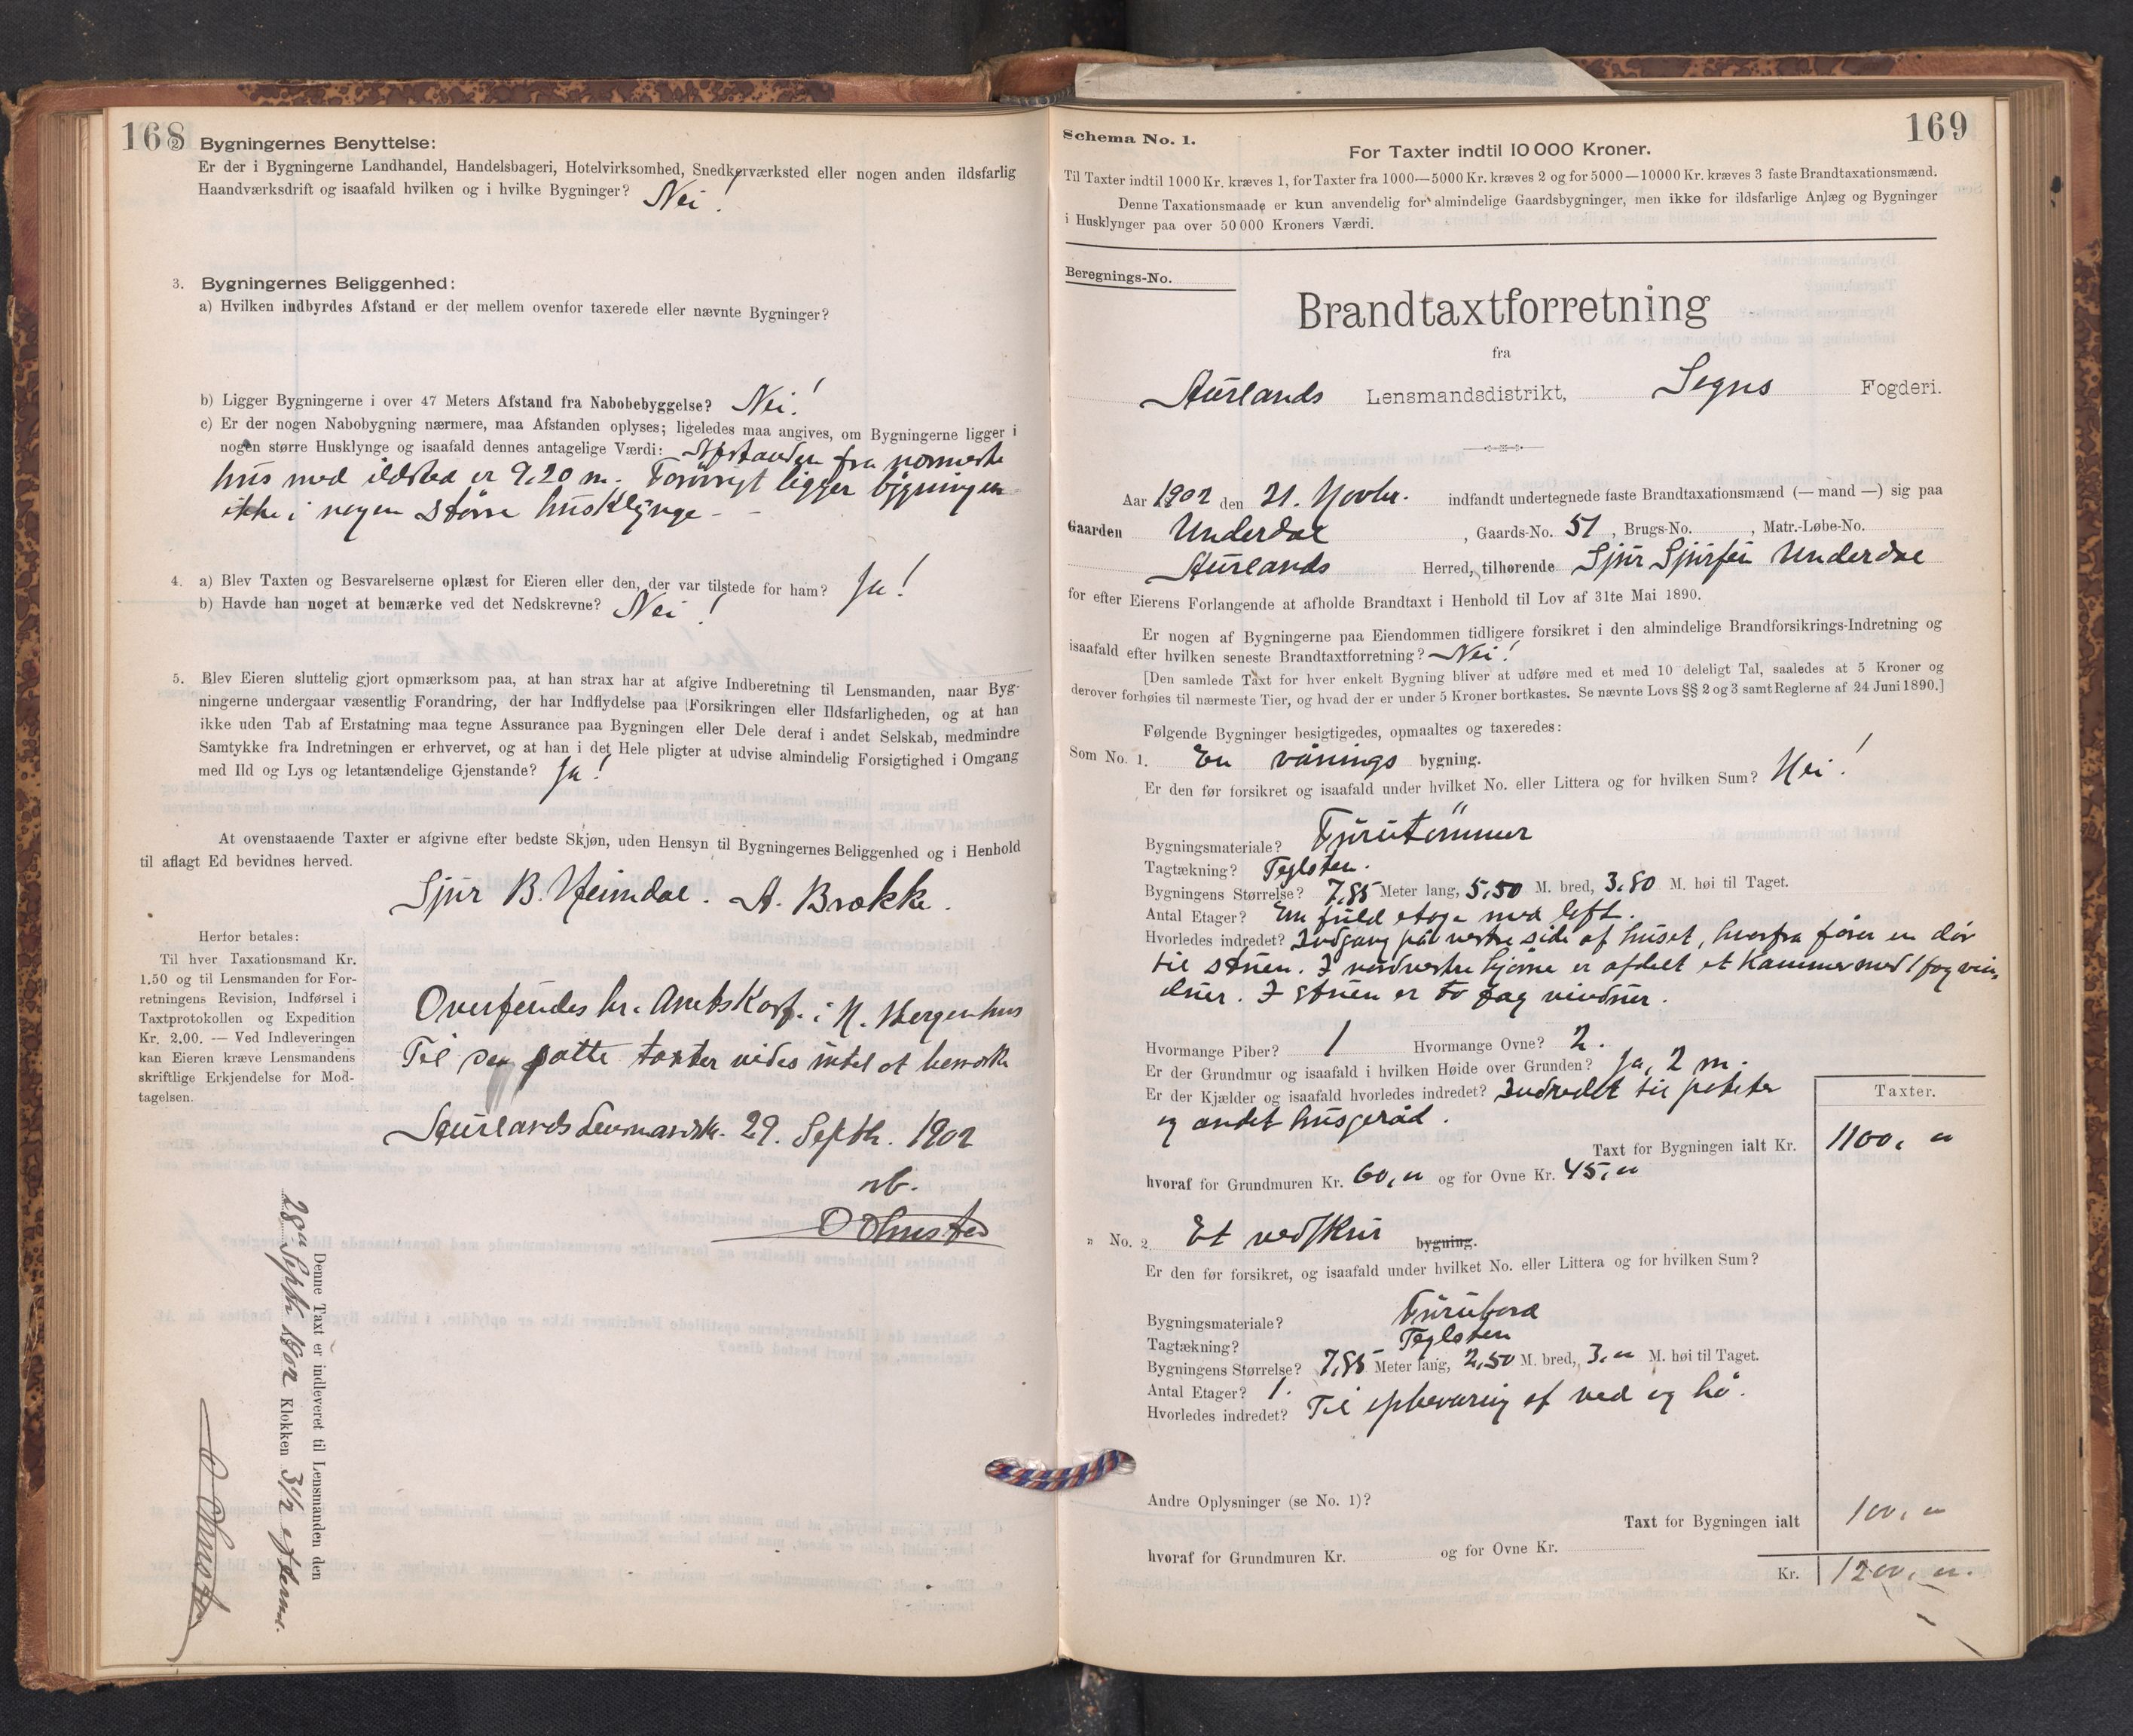 168
2 Bygningernes Benyttelse:
Er der i Bygningerne Landhandel, Handelsbageri, Hotelvirksomhed, Snedkerværksted eller nogen anden ildsfarlig
Haandværksdrift og isaafald hvilken og i hvilke Bygninger? Nei!
3. Bygningernes Beliggenhed:
a) Hvilken indbyrdes Afstand er der mellem ovenfor taxerede eller nævnte Bygninger?
b) Ligger Bygningerne i over 47 Meters Afstand fra Nabobebyggelse? Nei!
c) Er der nogen Nabobygning nærmere, maa Afstanden oplyses; ligeledes maa angives, om Bygningerne ligger i
nogen større Husklynge og isaafald dennes antagelige Værdi: Afstanden fra nærmeste
hus med ildsted er 9,20 m. Forøvrigt ligger bygningen
ikke i nogen større husklynge -
4. a) Blev Taxten og Besvarelserne oplæst for Eieren eller den, der var tilstede for ham? Ja!
b) Havde han noget at bemærke ved det Nedskrevne? Nei!
5. Blev Eieren sluttelig gjort opmærksom paa, at han strax har at afgive Indberetning til Lensmanden, naar Byg-
ningerne undergaar væsentlig Forandring, der har Indflydelse paa Forsikringen eller Ildsfarligheden, og at han
ikke uden Tab af Erstatning maa tegne Assurance paa Bygningen eller Dele deraf i andet Selskab, medmindre
Samtykke fra Indretningen er erhvervet, og at han i det Hele pligter at udvise almindelig Forsigtighed i Omgang
med Ild og Lys og letantændelige Gjenstande? Ja!
At ovenstaaende Taxter er afgivne efter bedste Skjøn, uden Hensyn til Bygningernes Beliggenhed og i Henhold
til aflagt Ed bevidnes herved.
Sjur B. Heimdal. A. Brække.
Herfor betales:
Til hver Taxationsmand Kr.
1.50 og til Lensmanden for For-
retningens Revision, Indførsel i
Taxtprotokollen og Expedition
Kr. 2.00. — Ved Indleveringen
kan Eieren kræve Lensmandens
skriftlige Erkjendelse for Mod-
tagelsen.
Oversendes hr. Amtskasf. i N. Bergenhus
Til den satte taxter vides intet at bemærke
Aurlands Lensmandsk. 29. Septb. 1902
Denne Taxt er indleveret til Lensmanden den
28de Septbr 1902 Klokken 3 1/2 efterm.
169
Schema No. 1.
For Taxter indtil 10 000 Kroner.
Til Taxter indtil 1000 Kr. kræves 1, for Taxter fra 1000—5000 Kr. kræves 2 og for 5000—10000 Kr. kræves 3 faste Brandtaxationsmænd.
Denne Taxationsmaade er kun anvendelig for almindelige Gaardsbygninger, men ikke for ildsfarlige Anlæg og Bygninger
i Husklynger paa over 50 000 Kroners Værdi.
Beregnings-No.
Brandtaxtforretning
fra
Aurlands Lensmandsdistrikt, Sogns Fogderi.
Aar 1902 den 21. Novbr. indfandt undertegnede faste Brandtaxationsmænd (— mand —) sig paa
Gaarden Underdal, Gaards-No. 51, Brugs-No. , Matr.-Løbe-No.
Aurlands Herred, tilhørende Sjur Sjursen Underdal
for efter Eierens Forlangende at afholde Brandtaxt i Henhold til Lov af 31te Mai 1890.
Er nogen af Bygningerne paa Eiendommen tidligere forsikret i den almindelige Brandforsikrings-Indretning og
isaafald efter hvilken seneste Brandtaxtforretning? Nei!
[Den samlede Taxt for hver enkelt Bygning bliver at udføre med et med 10 deleligt Tal, saaledes at 5 Kroner og
derover forhøies til nærmeste Tier, og hvad der er under 5 Kroner bortkastes. Se nævnte Lovs §§ 2 og 3 samt Reglerne af 24 Juni 1890.]
Følgende Bygninger besigtigedes, opmaaltes og taxeredes:
Som No. 1. En vånings bygning.
Er den før forsikret og isaafald under hvilket No. eller Littera og for hvilken Sum? Nei!
Bygningsmateriale? Furutømmer
Tagtækning? Teglsten.
Bygningens Størrelse? 7,85 Meter lang, 5,50 M. bred, 3,80 M. høi til Taget.
Antal Etager? En fuld etage med loft.
Hvorledes indredet? Indgang på vestre side af huset, hvorfra fører en dør
til stuen. I nordvestre hjørne er afdelt et kammer med 1 fag vin-
duer. I stuen er to fag vinduer.
Hvormange Piber? 1 Hvormange Ovne? 2.
Er der Grundmur og isaafald i hvilken Høide over Grunden? Ja, 2 m.
Er der Kjælder og isaafald hvorledes indredet? Indredet til poteter
og andet husgeråd.
Taxter.
Taxt for Bygningen ialt Kr. 1100, "
hvoraf for Grundmuren Kr. 60, " og for Ovne Kr. 45, "
" No. 2 Et vedskur bygning.
Er den før forsikret, og isaafald under hvilket No. eller Littera og for hvilken Sum?
Bygningsmateriale? Furubord
Tagtækning? Teglsten
Bygningens Størrelse? 7,85 Meter lang, 2,50 M. bred, 3, " M. høi til Taget.
Antal Etager? 1.
Hvorledes indredet? Til opbevaring af ved og hø.
Andre Oplysninger (se No. 1)?
Taxt for Bygningen ialt 100, "
hvoraf for Grundmuren Kr. og for Ovne Kr.
Kr. 1200, ".